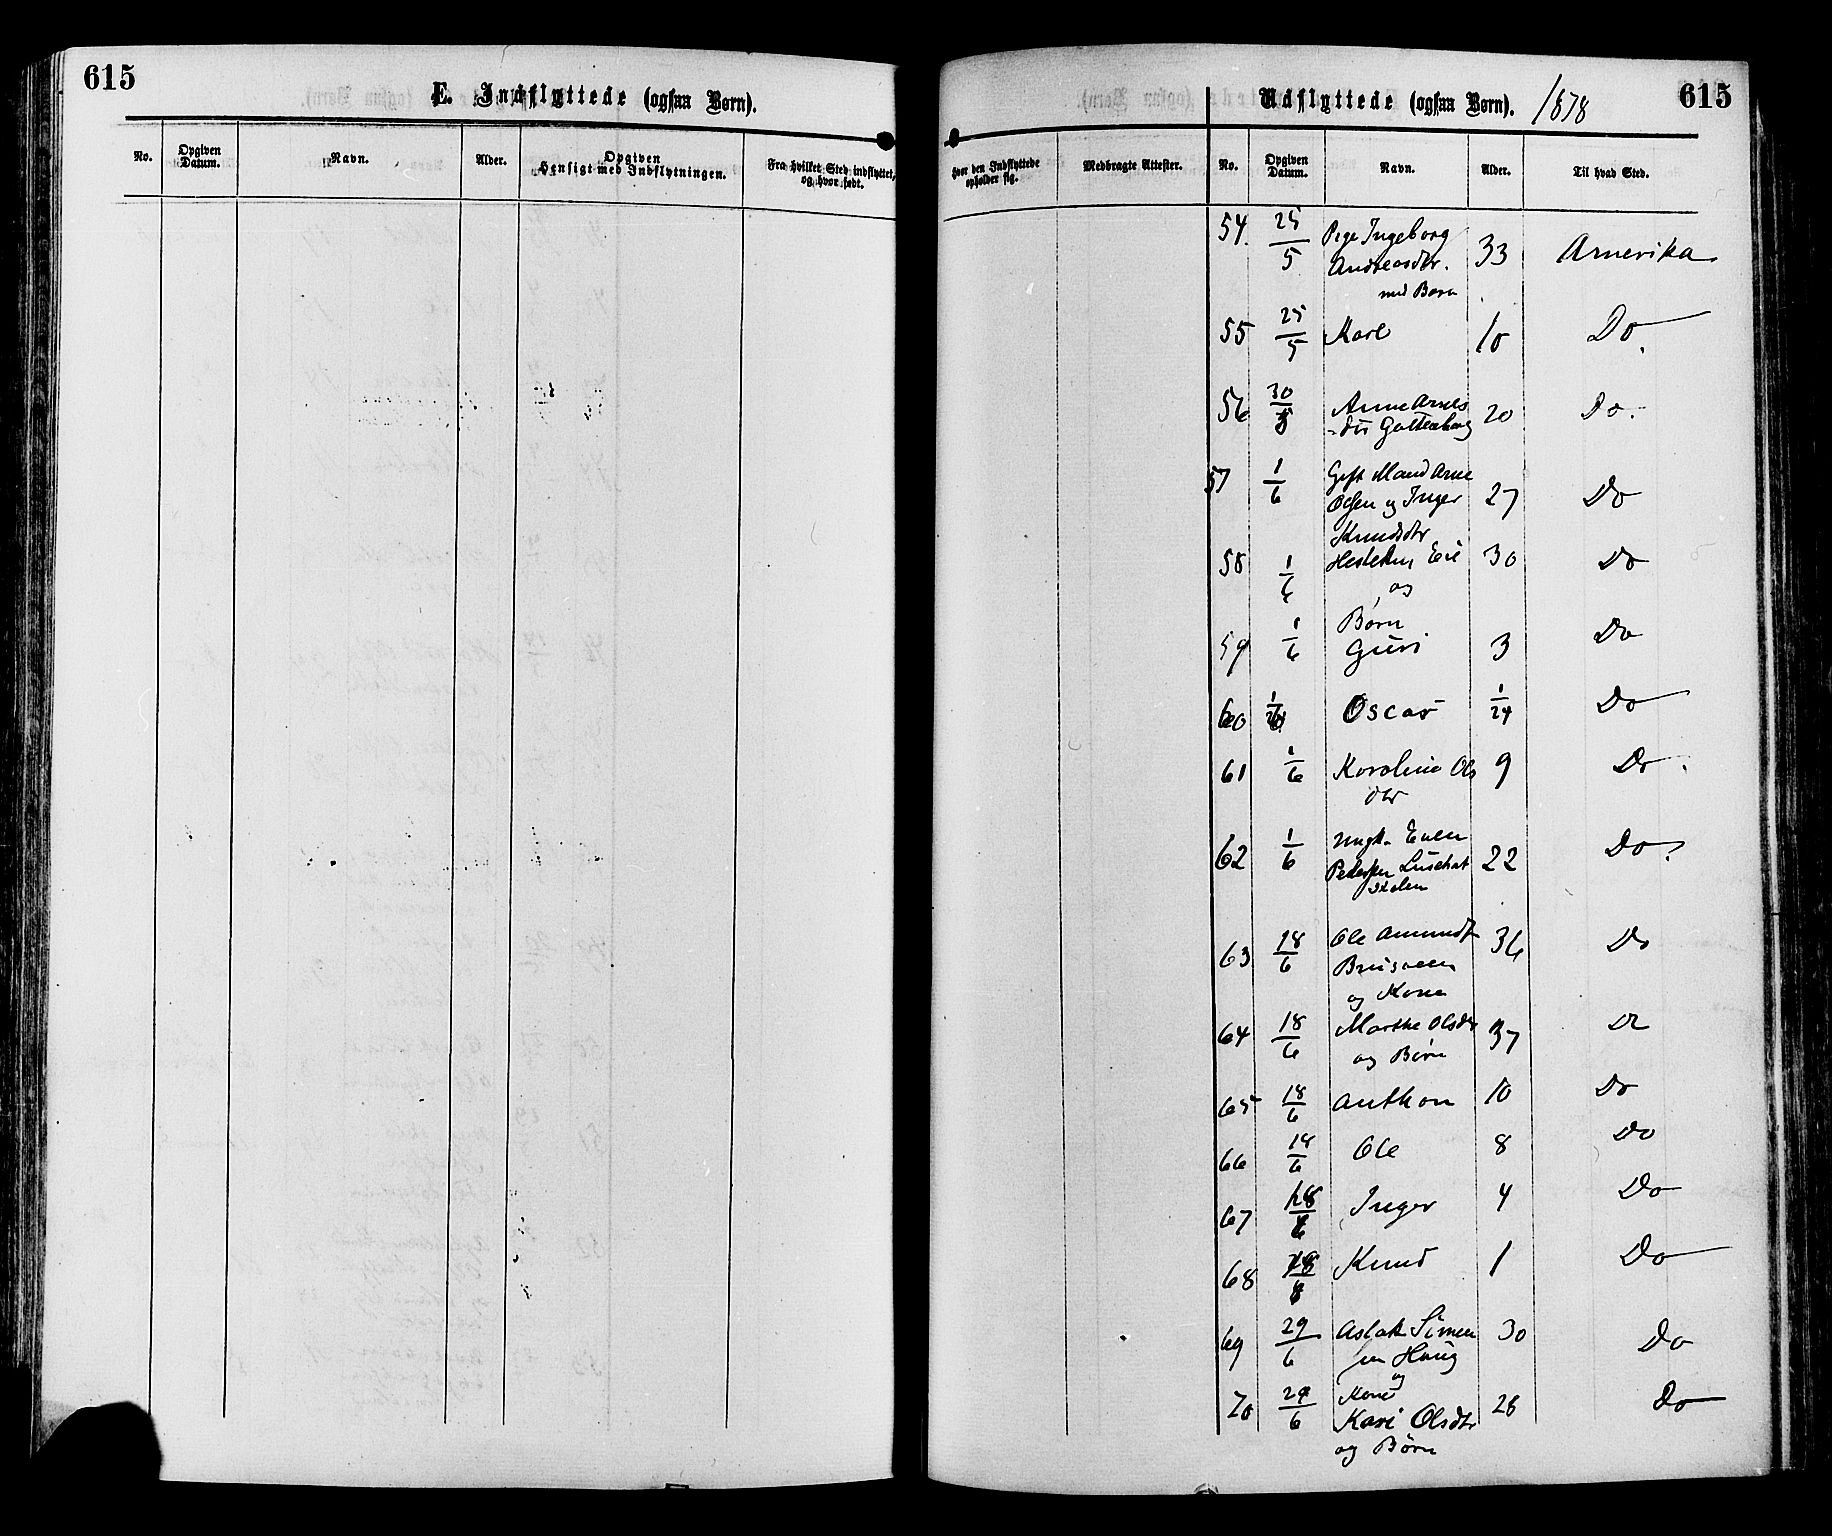 615
E. Indflyttede (ogsaa Børn).
No.
Opgiven Datum.
Navn.
Alder.
Opgiven Hensigt med Indflytningen.
Fra hvilket Sted indflyttet, og hvor født.
615
Udflyttede (ogsaa Børn). 1878
Hvor den Indflyttede opholder sig.
Medbragte Attester.
No.
Opgiven Datum.
Navn.
Alder.
Til hvad Sted.
54. 25/5 Pige Ingeborg
Andreasdtr. 33 Amerika
med Barn
55 25/5 Karl 10 Do
56 30/5 Anne Arnes
-dtr 20 Do.
57 1/6 Gift Mand Arne
Olsen og Inger 27 Do
Knudsdtr
58 1/6 Eie 30 Do
og
Børn
59 1/6 Guri 3 Do
60 1/6 Oscar 1/24 Do
61 1/6 Karoline Ols 9 Do.
dtr
62 1/6 Ungk. Even
Pedersen 22 Do.
63 18/6 Ole Amundsn 36 Do
Brusveen
og Kone
64 18/6 Marthe Olsdtr 37 Do
og Børn
65 18/6 Anthon 10 Do
66 18/6 Ole 8 Do
67 18/6 Inger 4 Do
68 18/6 Knud 1 Do
69 29/6 Aslak Simen 30 Do
sen Haug
og
70 29/6 Kone
Kari Olsdtr 28 Do
og Børn